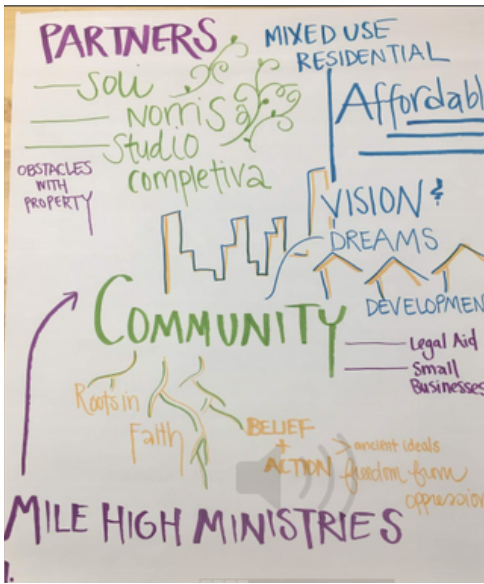 PARTNERS
Soli
Norris &
Studio
completiva
OBSTACLES
WITH
PROPERTY
MIXED USE
RESIDENTIAL
Affordabl
VISION &
DREAMS
DEVELOPMEN
COMMUNITY
Legal Aid
Small
Businesses
Roots in
Faith
BELIEF
+
ACTION
> ancient ideals
freedom from
oppression
MILE HIGH MINISTRIES
1.